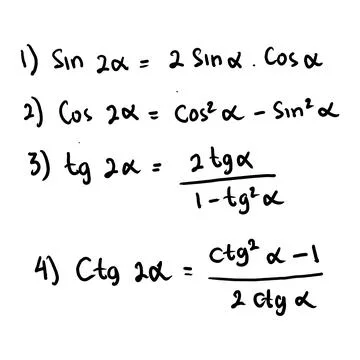 1) Sin 2α = 2 Sin α . Cos α
2) Cos 2α = Cos² α – Sin² α
3) tg 2α = 2 tg α / 1 – tg² α
4) Ctg 2α = Ctg² α – 1 / 2 Ctg α